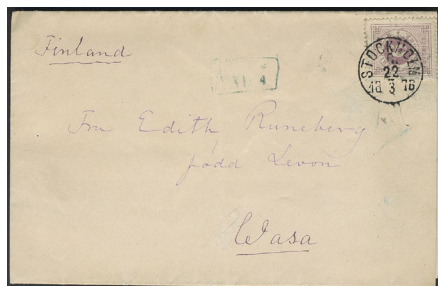 Finland
STOCKHOLM
22
18 3 76
Fru Edith Runeberg
född Levon
Wasa